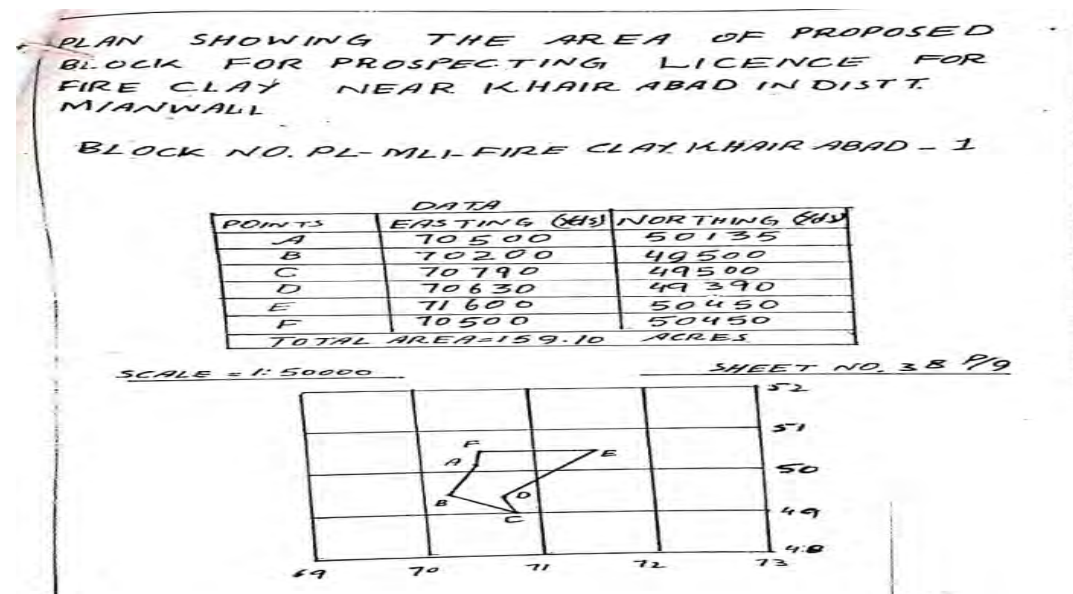 PLAN SHOWING THE AREA OF PROPOSED
BLOCK FOR PROSPECTING LICENCE FOR
FIRE CLAY NEAR KHAIR ABAD IN DISTT.
MIANWALI
BLOCK NO. PL-MLI-FIRE CLAY KHAIR ABAD - 1
DATA
POINTS EASTING (yds) NORTHING (yds)
A 70500 50135
B 70200 49500
C 70790 49500
D 70630 49390
E 71600 50450
F 70500 50450
TOTAL AREA=159.10 ACRES
SCALE = 1:50000 SHEET NO. 38 P/9
52
51
F E
A
50
B D
C
49
48
69 70 71 72 73